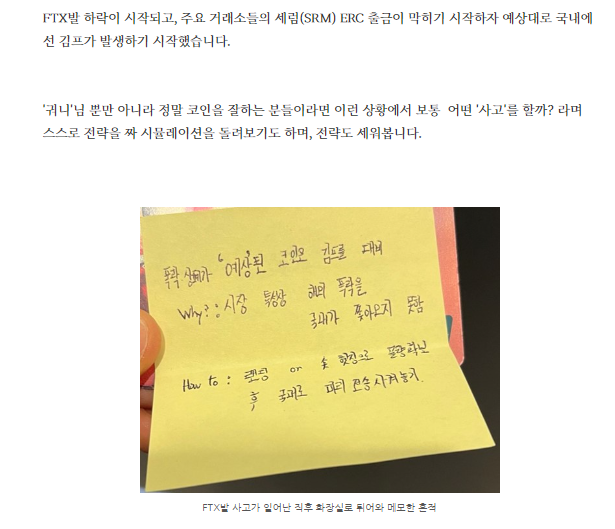 FTX발 하락이 시작되고, 주요 거래소들의 세럼(SRM) ERC 출금이 막히기 시작하자 예상대로 국내에
선 김프가 발생하기 시작했습니다.
'궈니'님 뿐만 아니라 정말 코인을 잘하는 분들이라면 이런 상황에서 보통 어떤 '사고'를 할까? 라며
스스로 전략을 짜 시뮬레이션을 돌려보기도 하며, 전략도 세워봅니다.
폭락 "예상"된 코인은 김프를 대비
Why? : 시장 특성상 해외 폭락을
국내가 쫓아오지 못함
How to : 렌딩 or 숏 헷징으로 물량확보
후 국내로 미리 전송시켜놓기.
FTX발 사고가 일어난 직후 화장실로 뛰어와 메모한 흔적